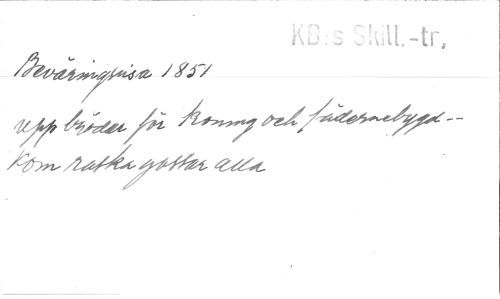 KB:s Skill.-tr,
Beväringsvisa 1851
Upp bröder för konung och fädernebygd --
Kom raska gossar alla